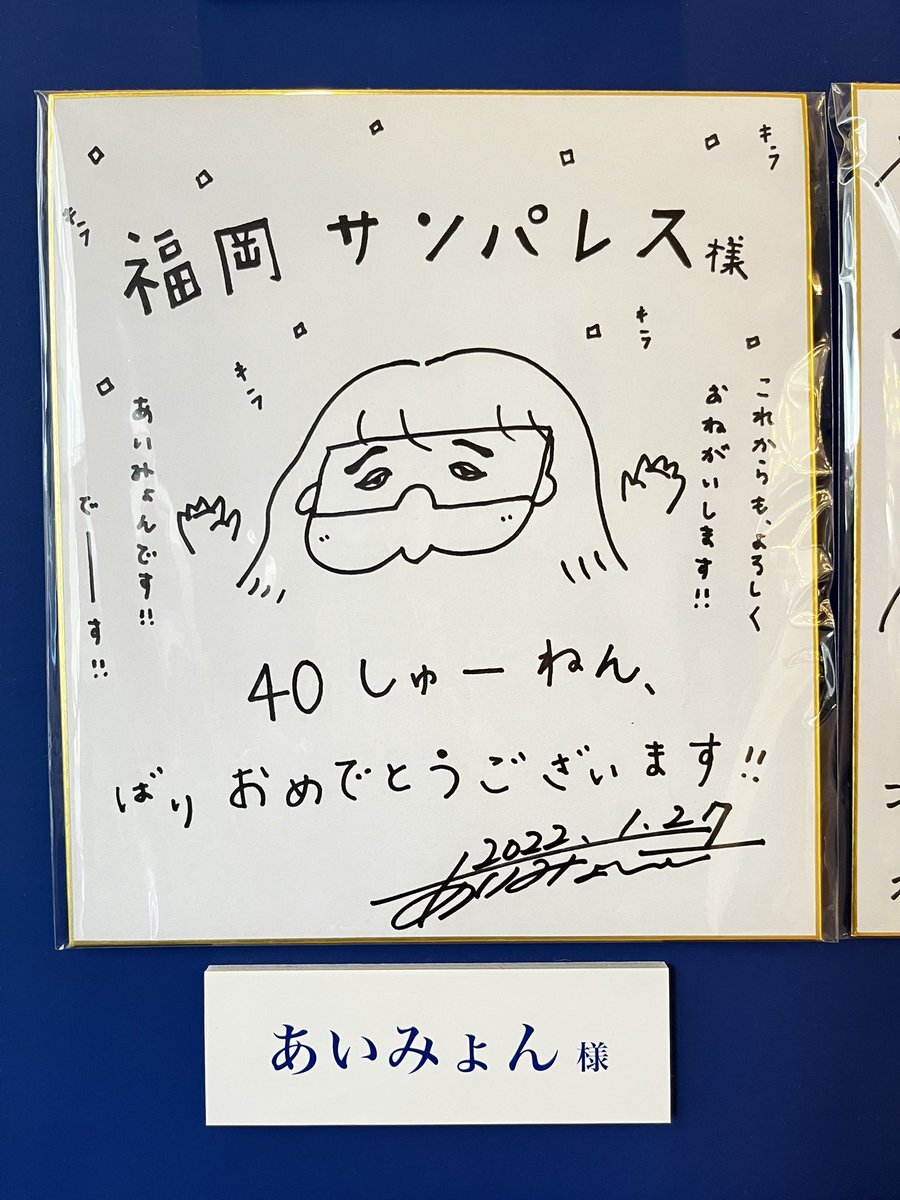 キラ
キラ
福岡 サンパレス様
キラ
キラ
これからも、よろしく
おねがいします!!
あいみょんです!!
でーーす!!
40しゅーねん、
ばりおめでとうございます!!
2022.1.27
あいみょん
あいみょん 様